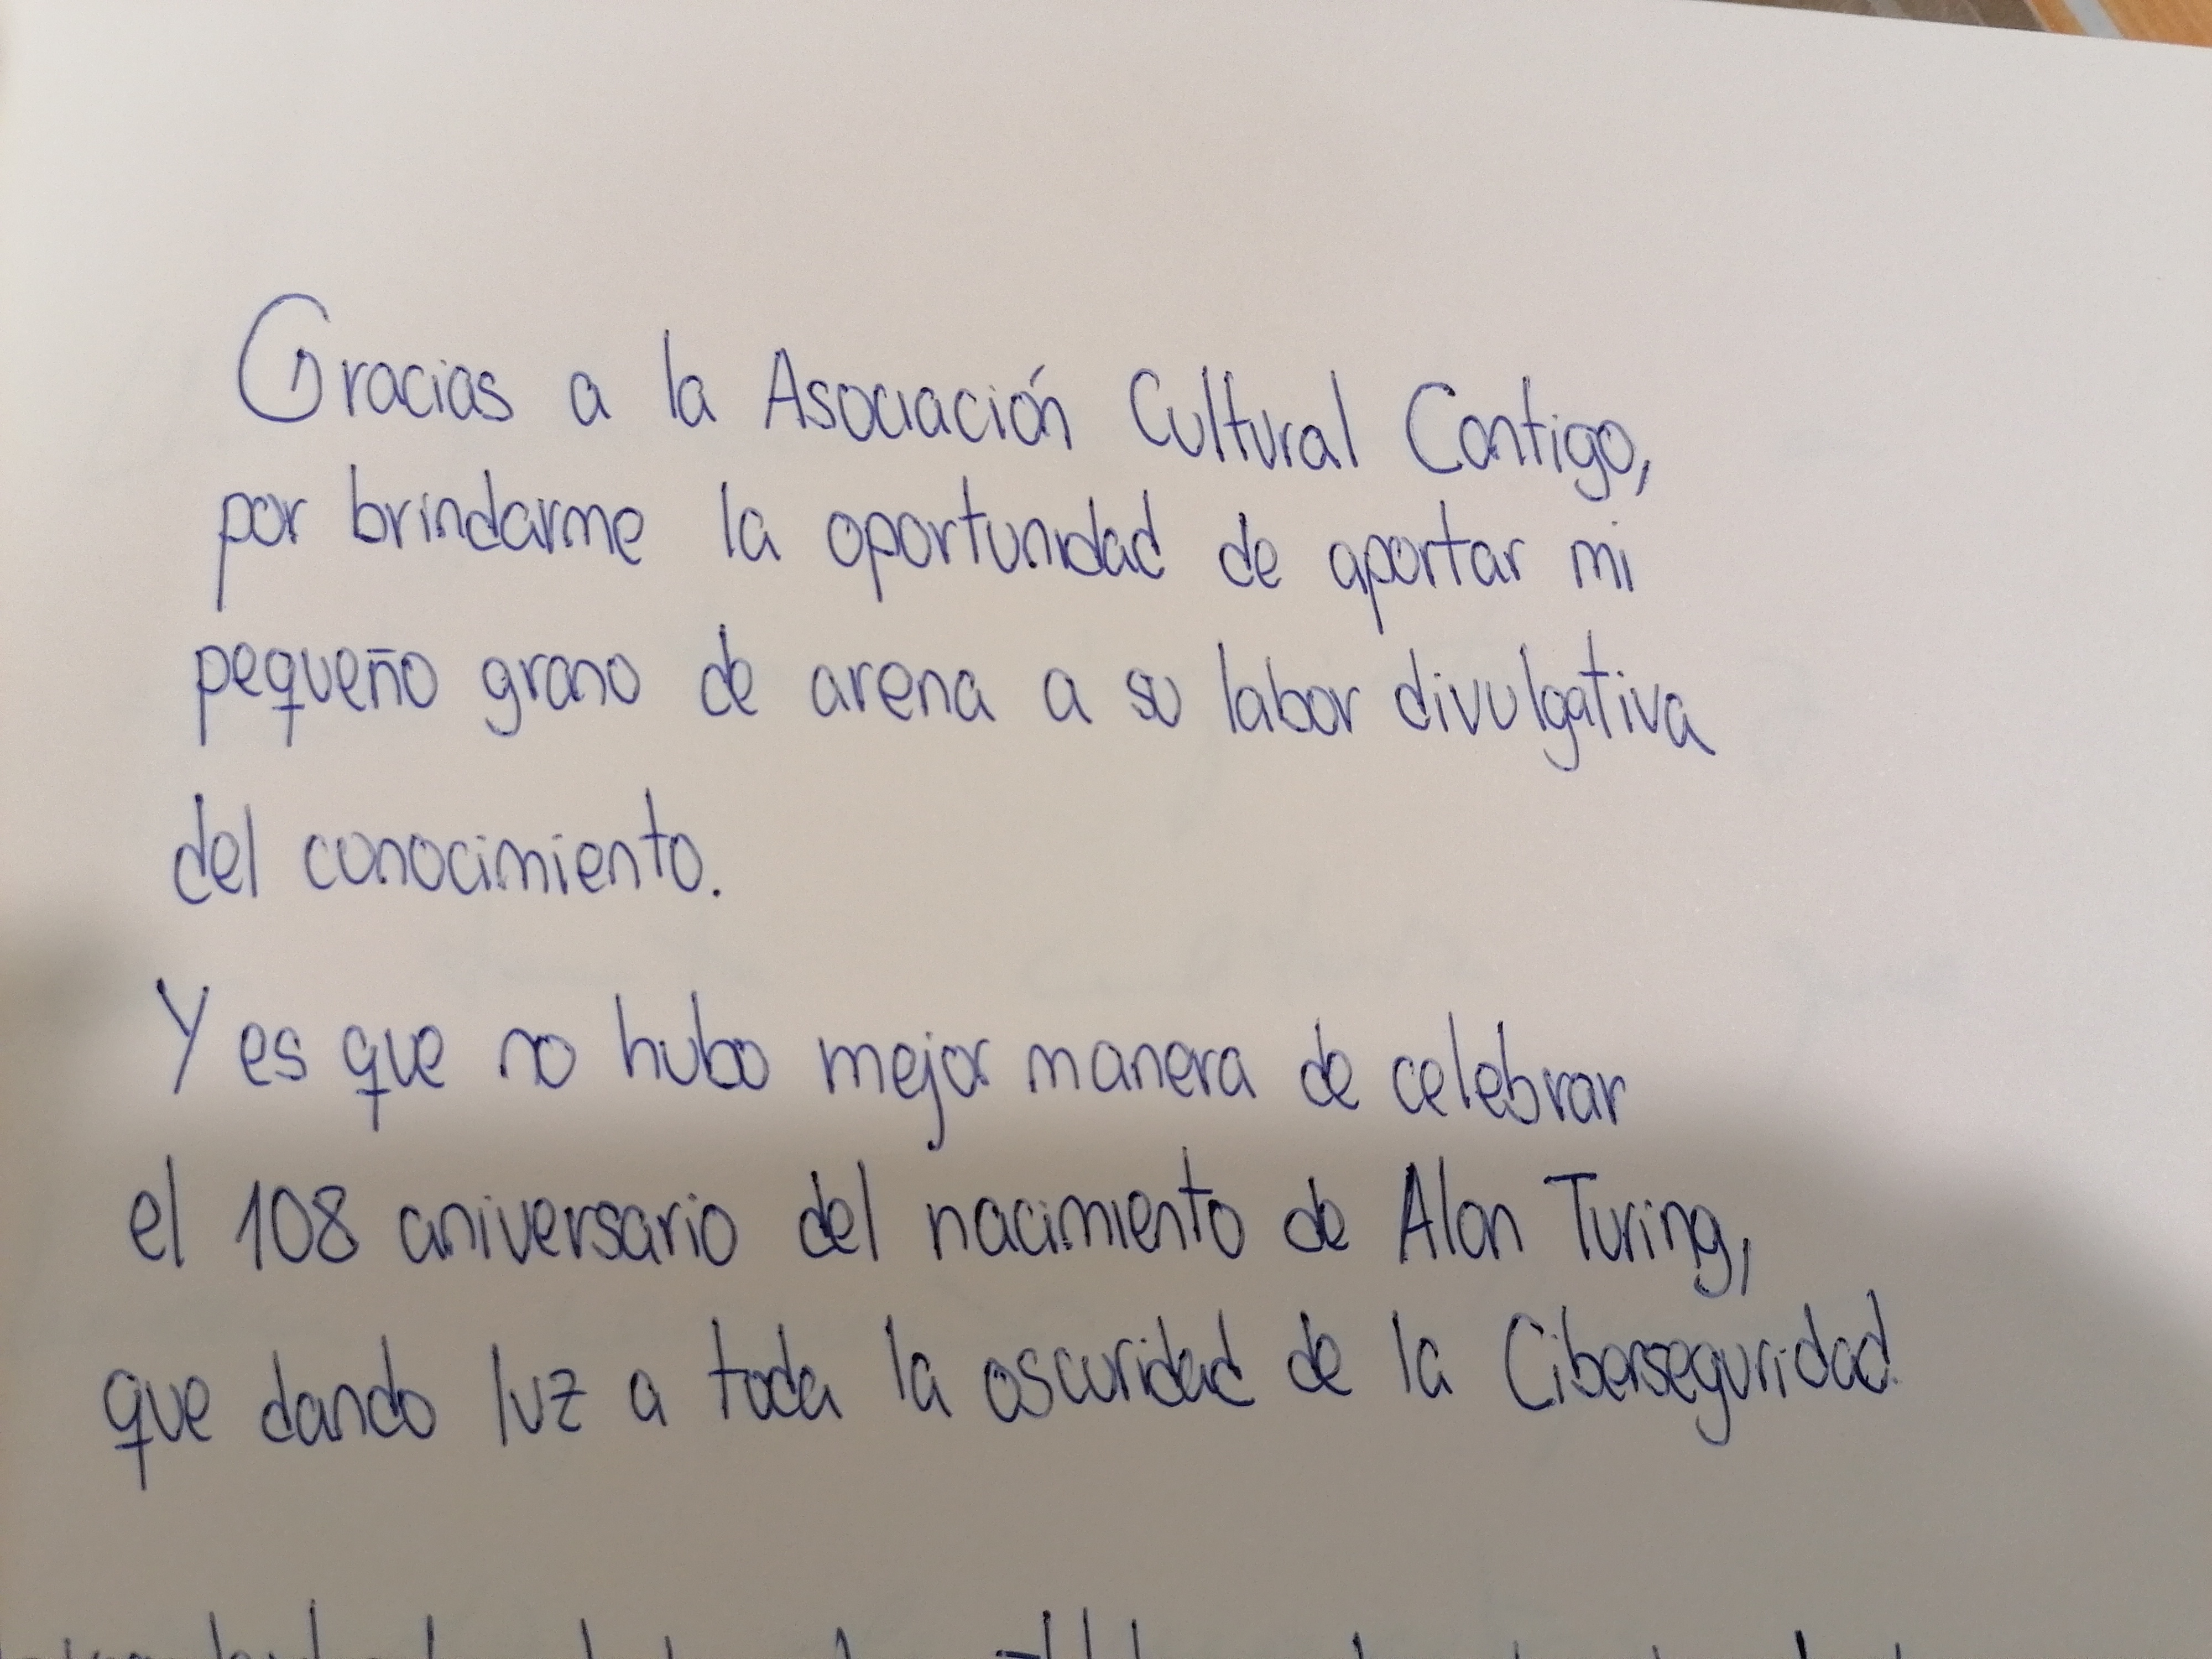 Gracias a la Asociación Cultural Contigo,
por brindarme la oportunidad de aportar mi
pequeño grano de arena a su labor divulgativa
del conocimiento.
Y es que no hubo mejor manera de celebrar
el 108 aniversario del nacimiento de Alan Turing,
que dando luz a toda la oscuridad de la Ciberseguridad.